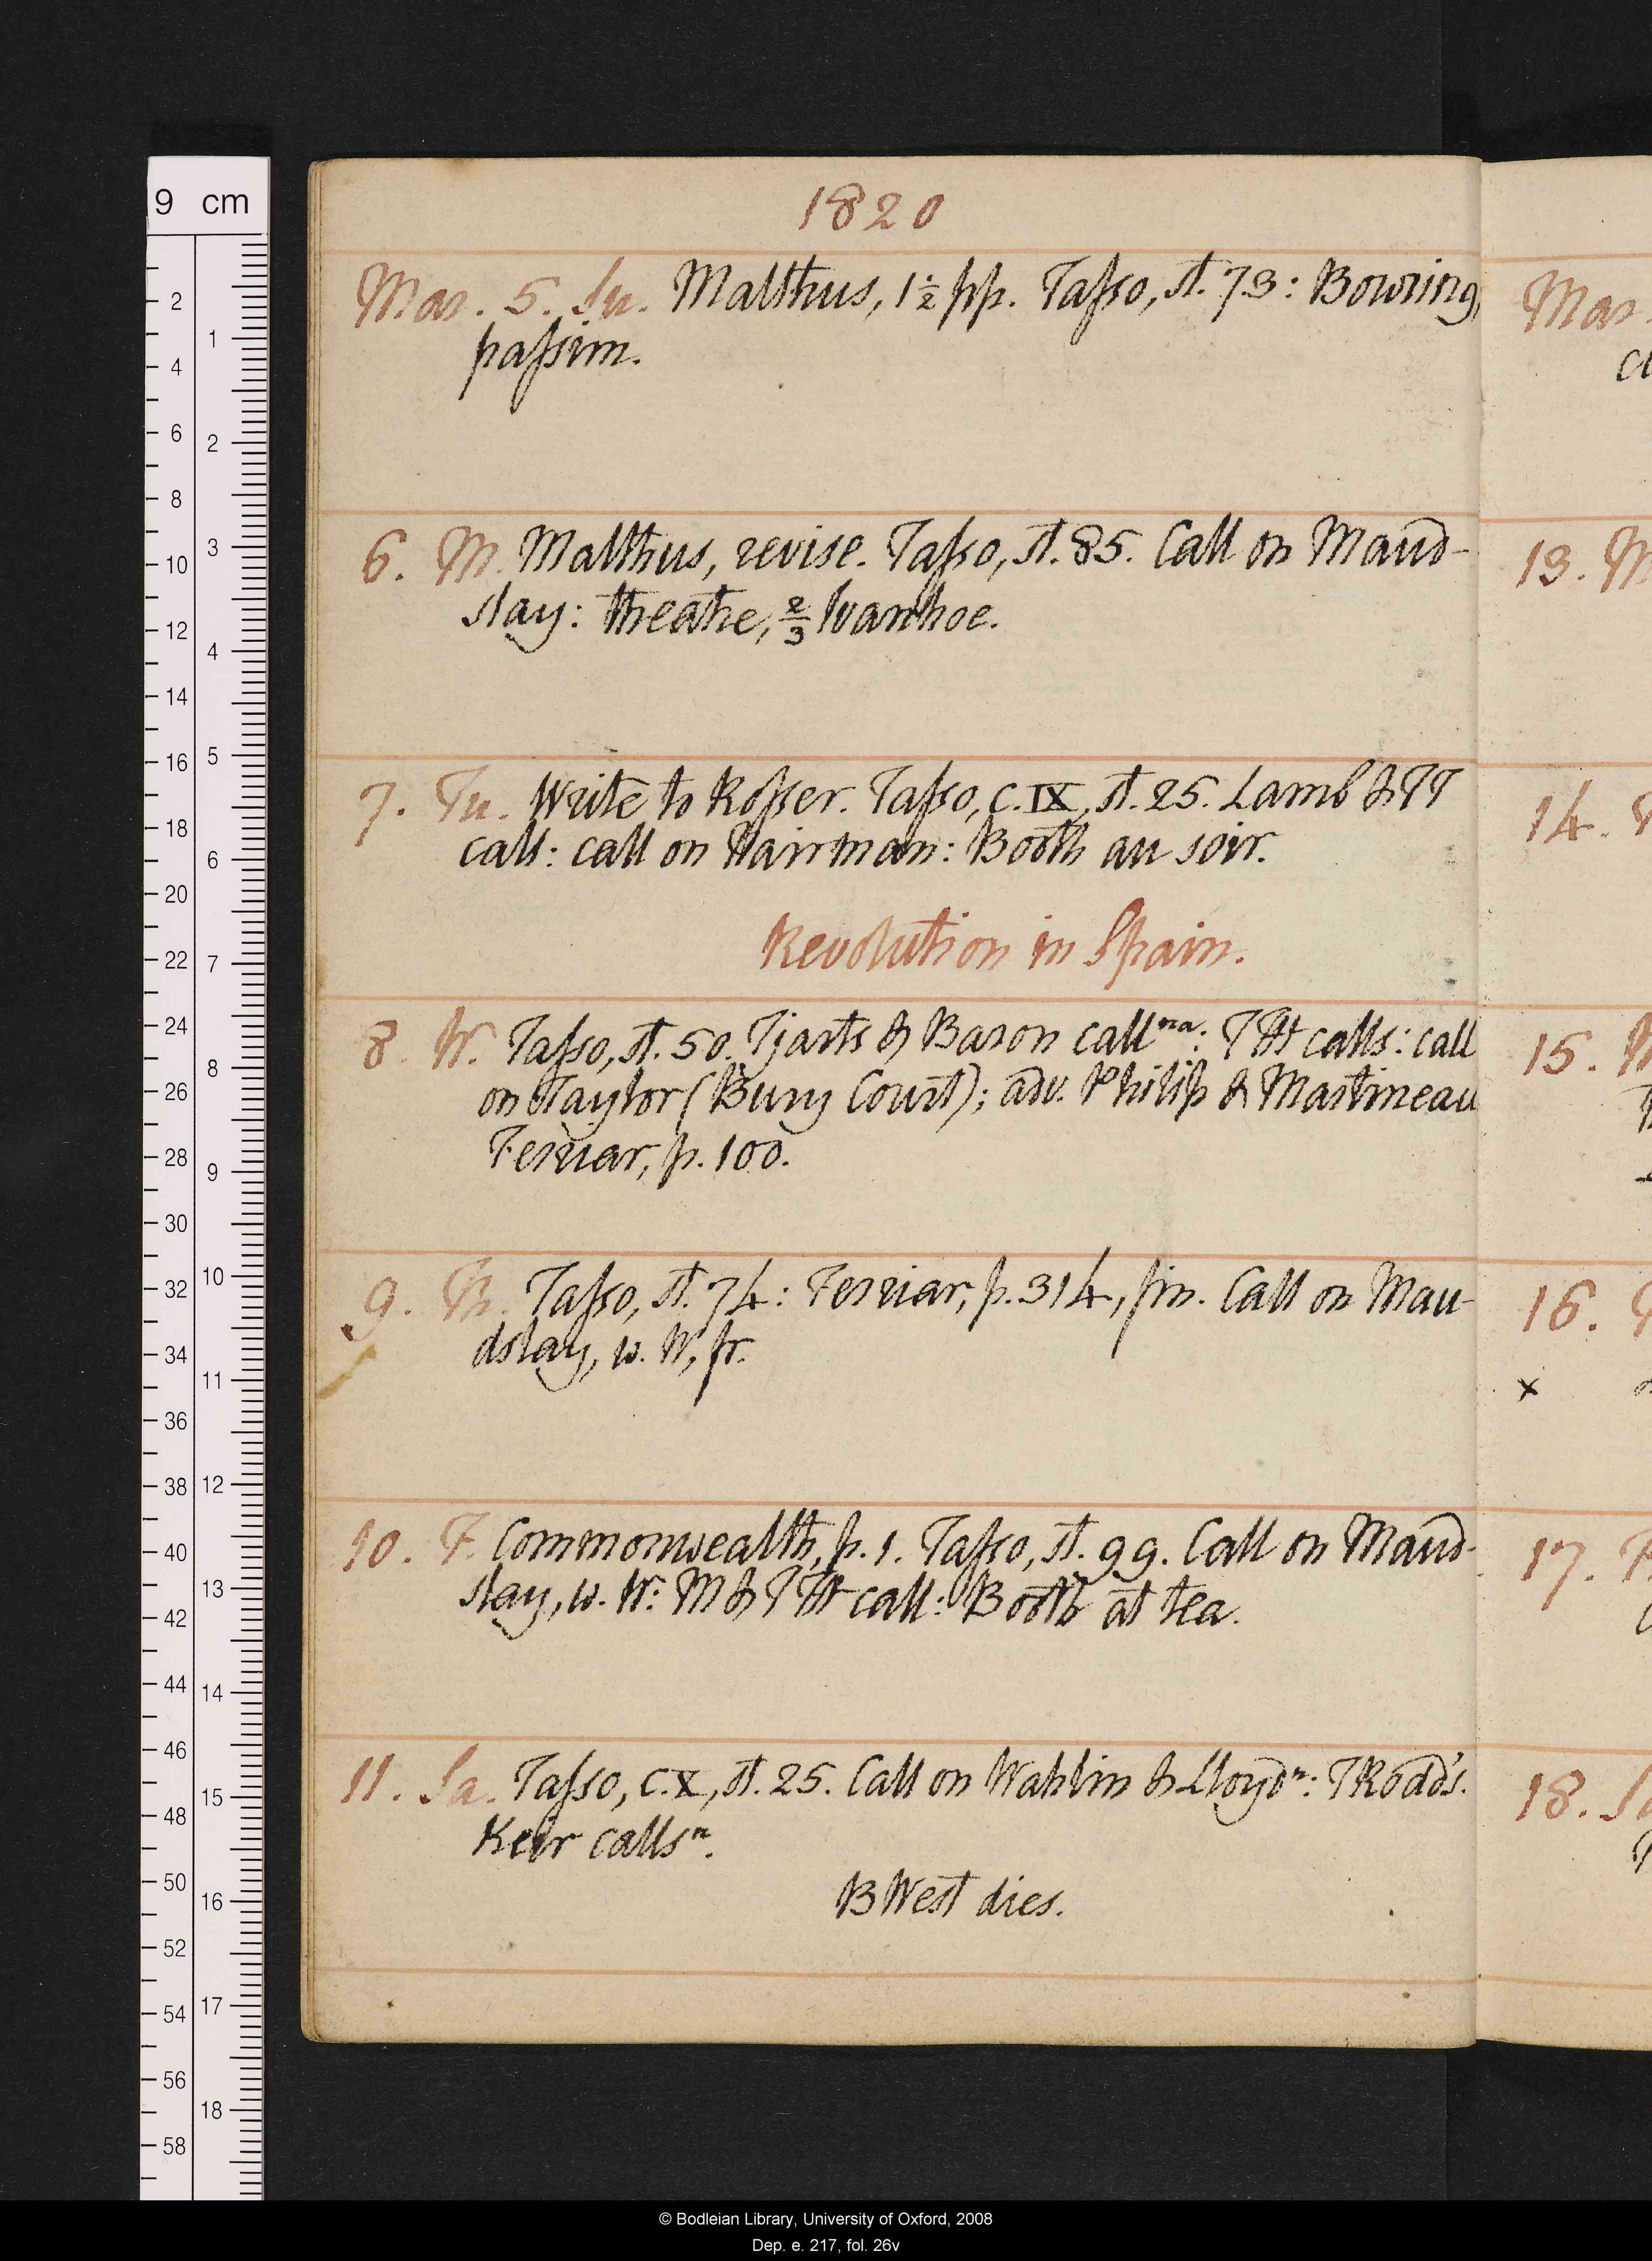 1820
Mar. 5. Su. Malthus, 1½ pp. Taſso, st. 73: Bowring,
paſsim.
6. M. Malthus, revise. Taſso, st. 85. Call on Maud-
slay: theatre, ⅔ Ivanhoe.
7. Tu. Write to Roſser. Taſso, c. IX, st. 25. Lamb & TT
call: call on Hairman: Booth au soir.
Revolution in Spain.
8 W. Taſso, st. 50. Tjarts & Baron call ⁿᵃ: T Ht calls: call
on Taylor (Bury Court); adv. Philip & Martineau
Ferriar, p. 100.
9. Th. Taſso, st. 74: Ferriar, p. 314, fin. Call on Mau-
dslay, w. W, jr.
10. F. Commonwealth, p. 1. Taſso, st. 99. Call on Maud-
slay, w. W: M & T Ht call: Booth at tea.
11. Sa. Taſso, c. X, st. 25. Call on Wahlin & Lloyd ⁿ: T Rodd's.
Keir calls ⁿ.
B West dies.
Mar
13. M
14.
15.
16.
x
17.
18.
9 cm
2
4
6
8
10
12
14
16
18
20
22
24
26
28
30
32
34
36
38
40
42
44
46
48
50
52
54
56
58
1
2
3
4
5
6
7
8
9
10
11
12
13
14
15
16
17
18
© Bodleian Library, University of Oxford, 2008
Dep. e. 217, fol. 26v